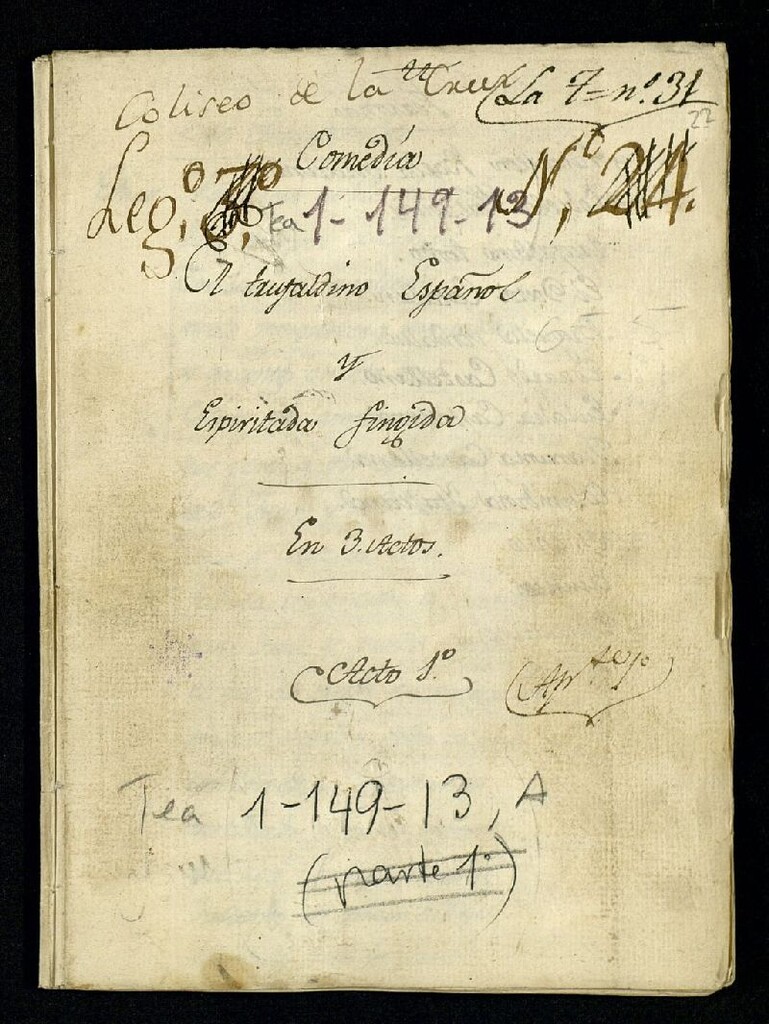 Coliseo de la Cruz
La 7= nº. 31
22
Comedia
Leg.º
N.º 24.
Tea 1-149-13
El trufaldino Español
Y
Espiritada fingida
En 3. Actos.
Acto 1º.
Apto
Tea 1-149-13, A
(parte 1ª)